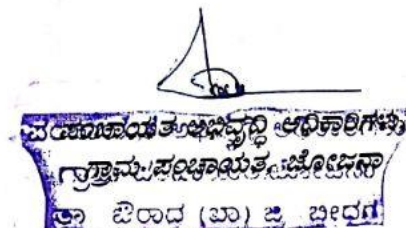 ಪಂಚಾಯತ ಅಭಿವೃದ್ಧಿ ಅಧಿಕಾರಿಗಳು
ಗ್ರಾಮ ಪಂಚಾಯತ ಜೋಜನಾ
ತಾ ಔರಾದ (ಬಾ) ಜಿ ಬೀದರ